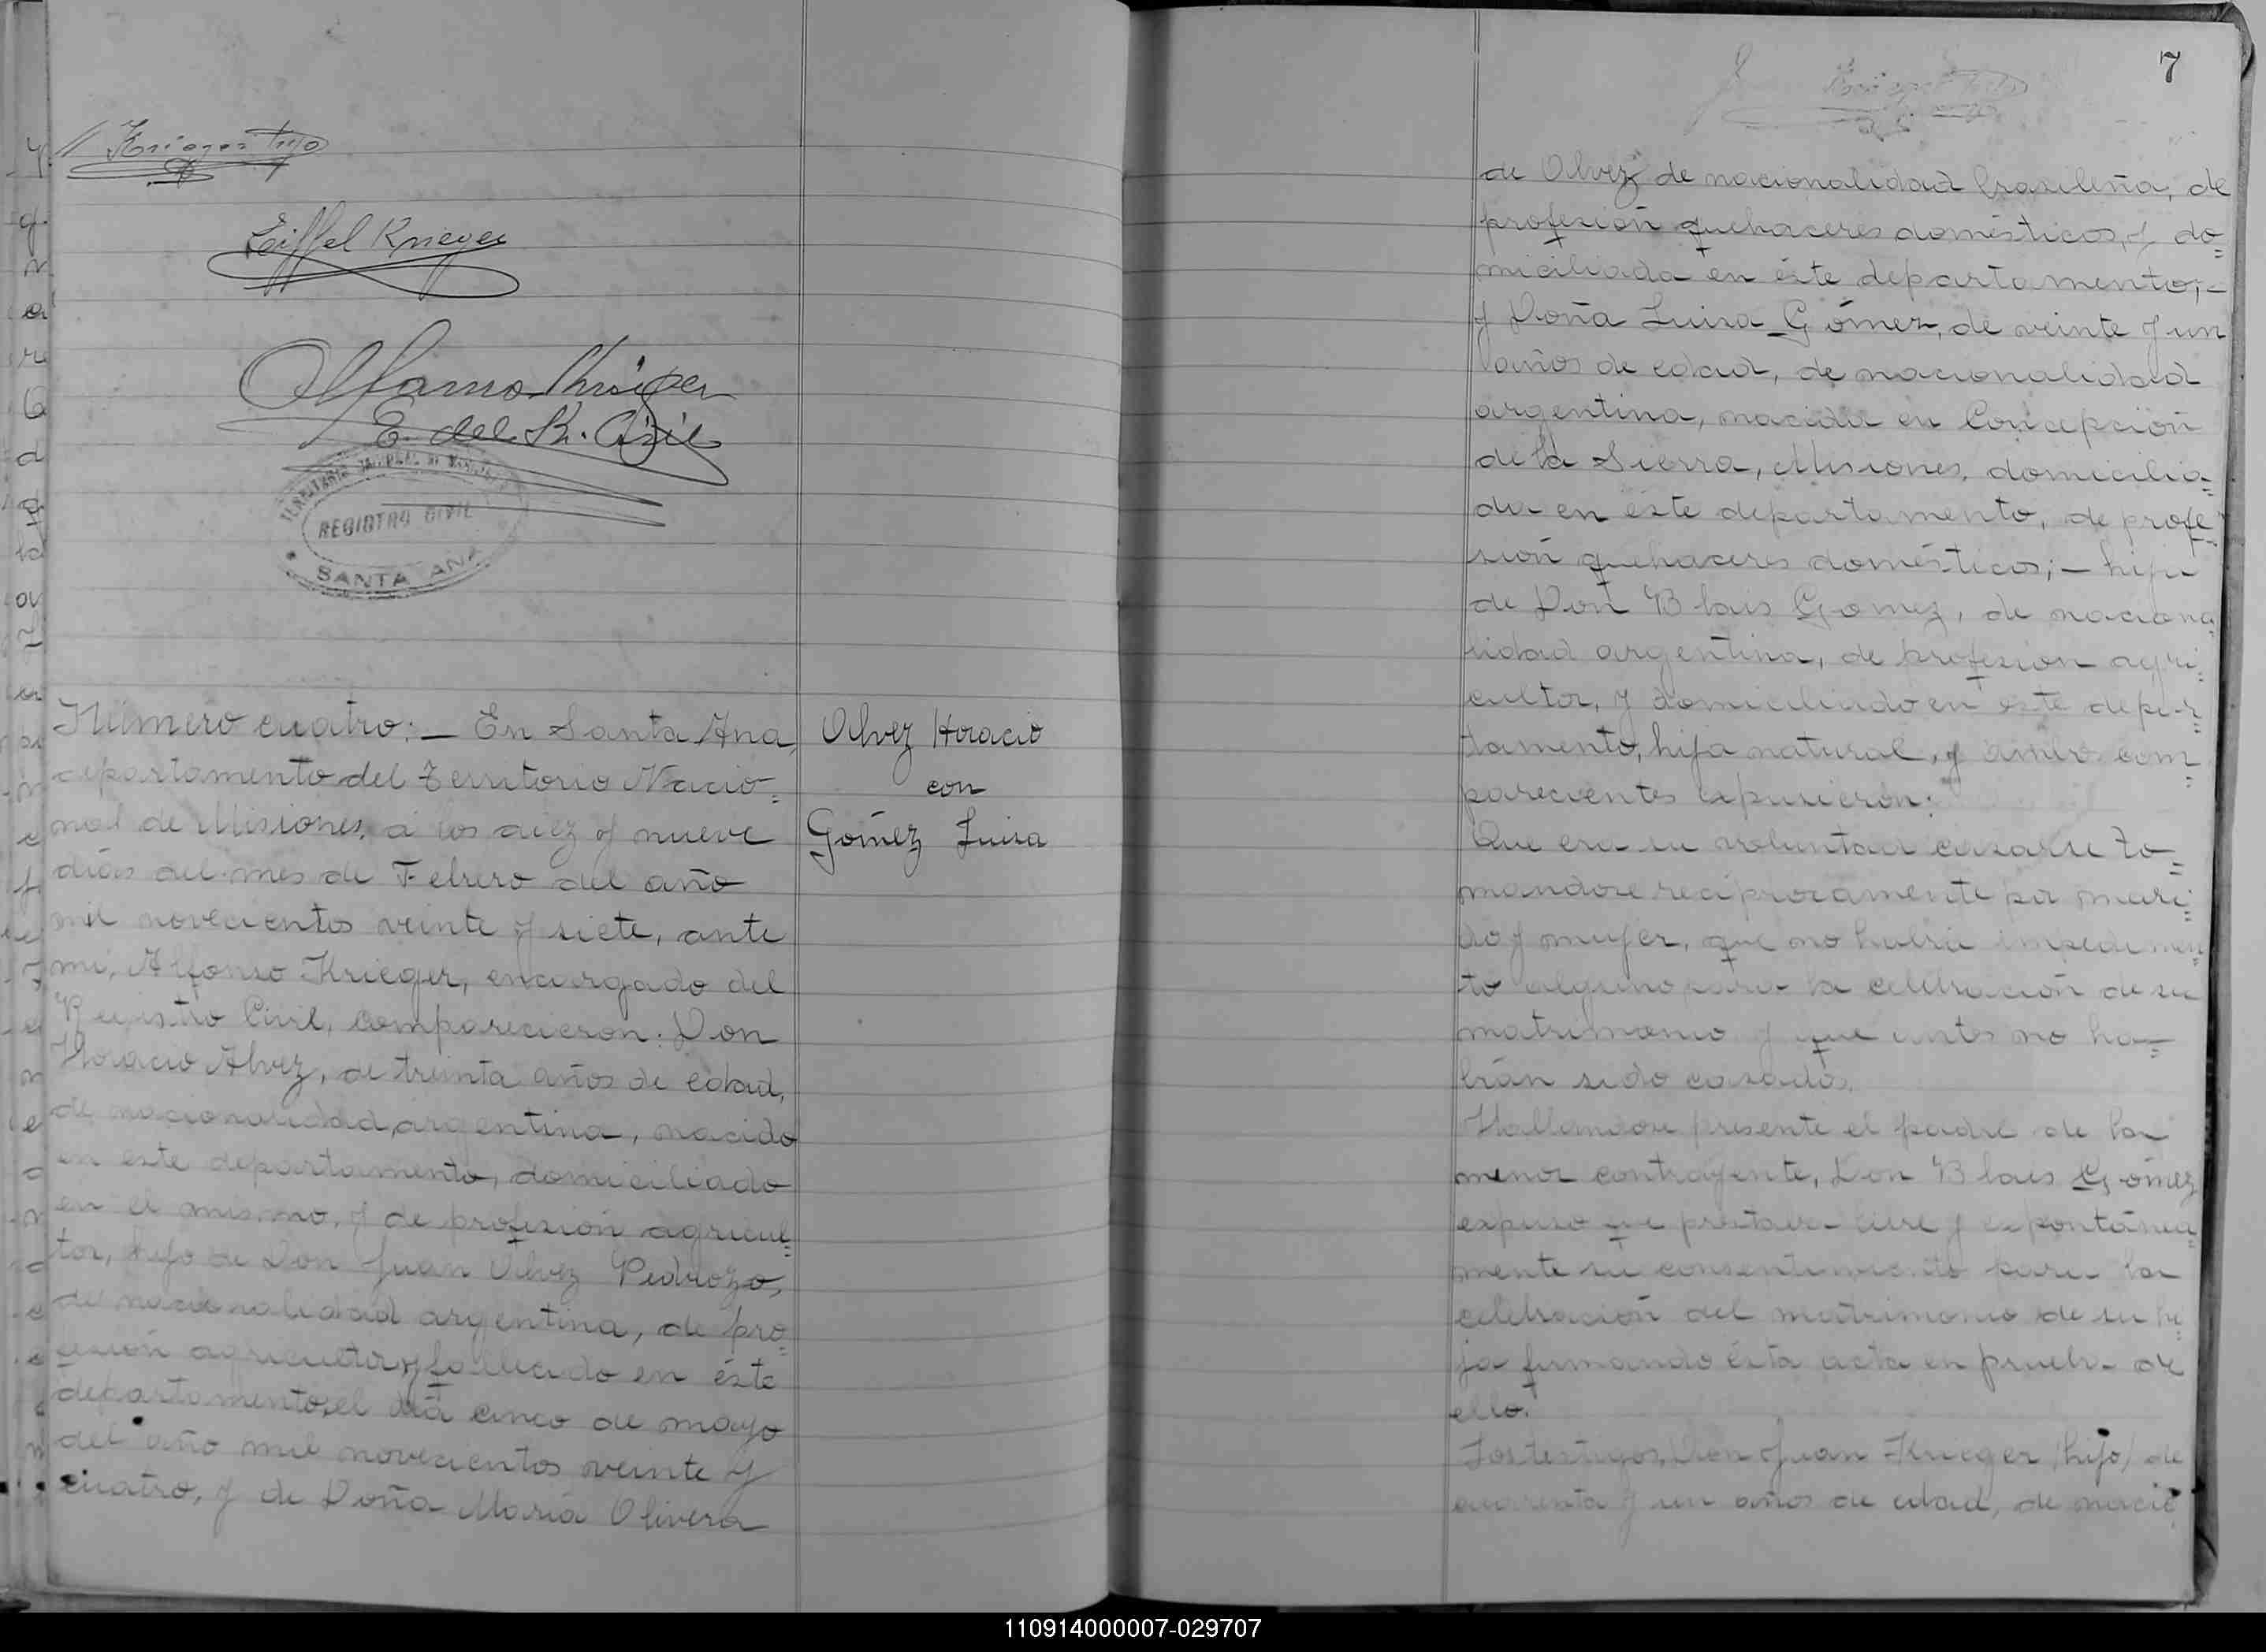 Krieger hijo
Eiffel Krieger
Alfonso Krieger
E. del R. Civil
TERRITORIO NACIONAL DE MISIONES
REGISTRO CIVIL
SANTA ANA
Número cuatro:— En Santa Ana,
departamento del Territorio Nacio=
nal de Misiones, a los diez y nueve
días del mes de Febrero del año
mil novecientos veinte y siete, ante
mi, Alfonso Krieger, encargado del
Registro Civil, comparecieron: Don
Horacio Alvez, de treinta años de edad,
de nacionalidad argentina, nacido
en este departamento, domiciliado
en el mismo, y de profesión agricul=
tor, hijo de Don Juan Olvez Pedrozo,
de nacionalidad argentina, de pro
fesión agricultor, y fallecido en éste
departamento, el día cinco de mayo
del año mil novecientos veinte y
cuatro, y de Doña María Olivera
Olvez Horacio
con
Goméz Luisa
7
de Olvez de nacionalidad brasileña, de
profesión quehaceres domésticos, y do=
miciliada en éste departamento;—
y Doña Luisa Gómez, de veinte y un
años de edad, de nacionalidad
argentina, nacida en Concepción
de la Sierra, Misiones, domicilia=
da en éste departamento, de profe=
sión quehaceres domésticos;— hija
de Don Blais Gomez, de naciona=
lidad argentina, de profesion agri=
cultor, y domiciliado en este depar=
tamento, hija natural, y ambos com=
parecientes expusieron:
Que era su voluntad casarse to=
mandose reciprocamente por mari=
do y mujer, que no habia impedimen=
to alguno para la celebración de su
matrimonio y que antes no ha=
bían sido casados.
Hallandose presente el padre de la
menor contrayente, Don Blais Gómez
expuso que prestava libre y espontánea=
mente su consentimiento para la
celebración del matrimonio de su hi=
ja firmando ésta acta en prueba de
ello.
Los testigos, Don Juan Krieger (hijo) de
cuarenta y un años de edad, de nacio
110914000007-029707